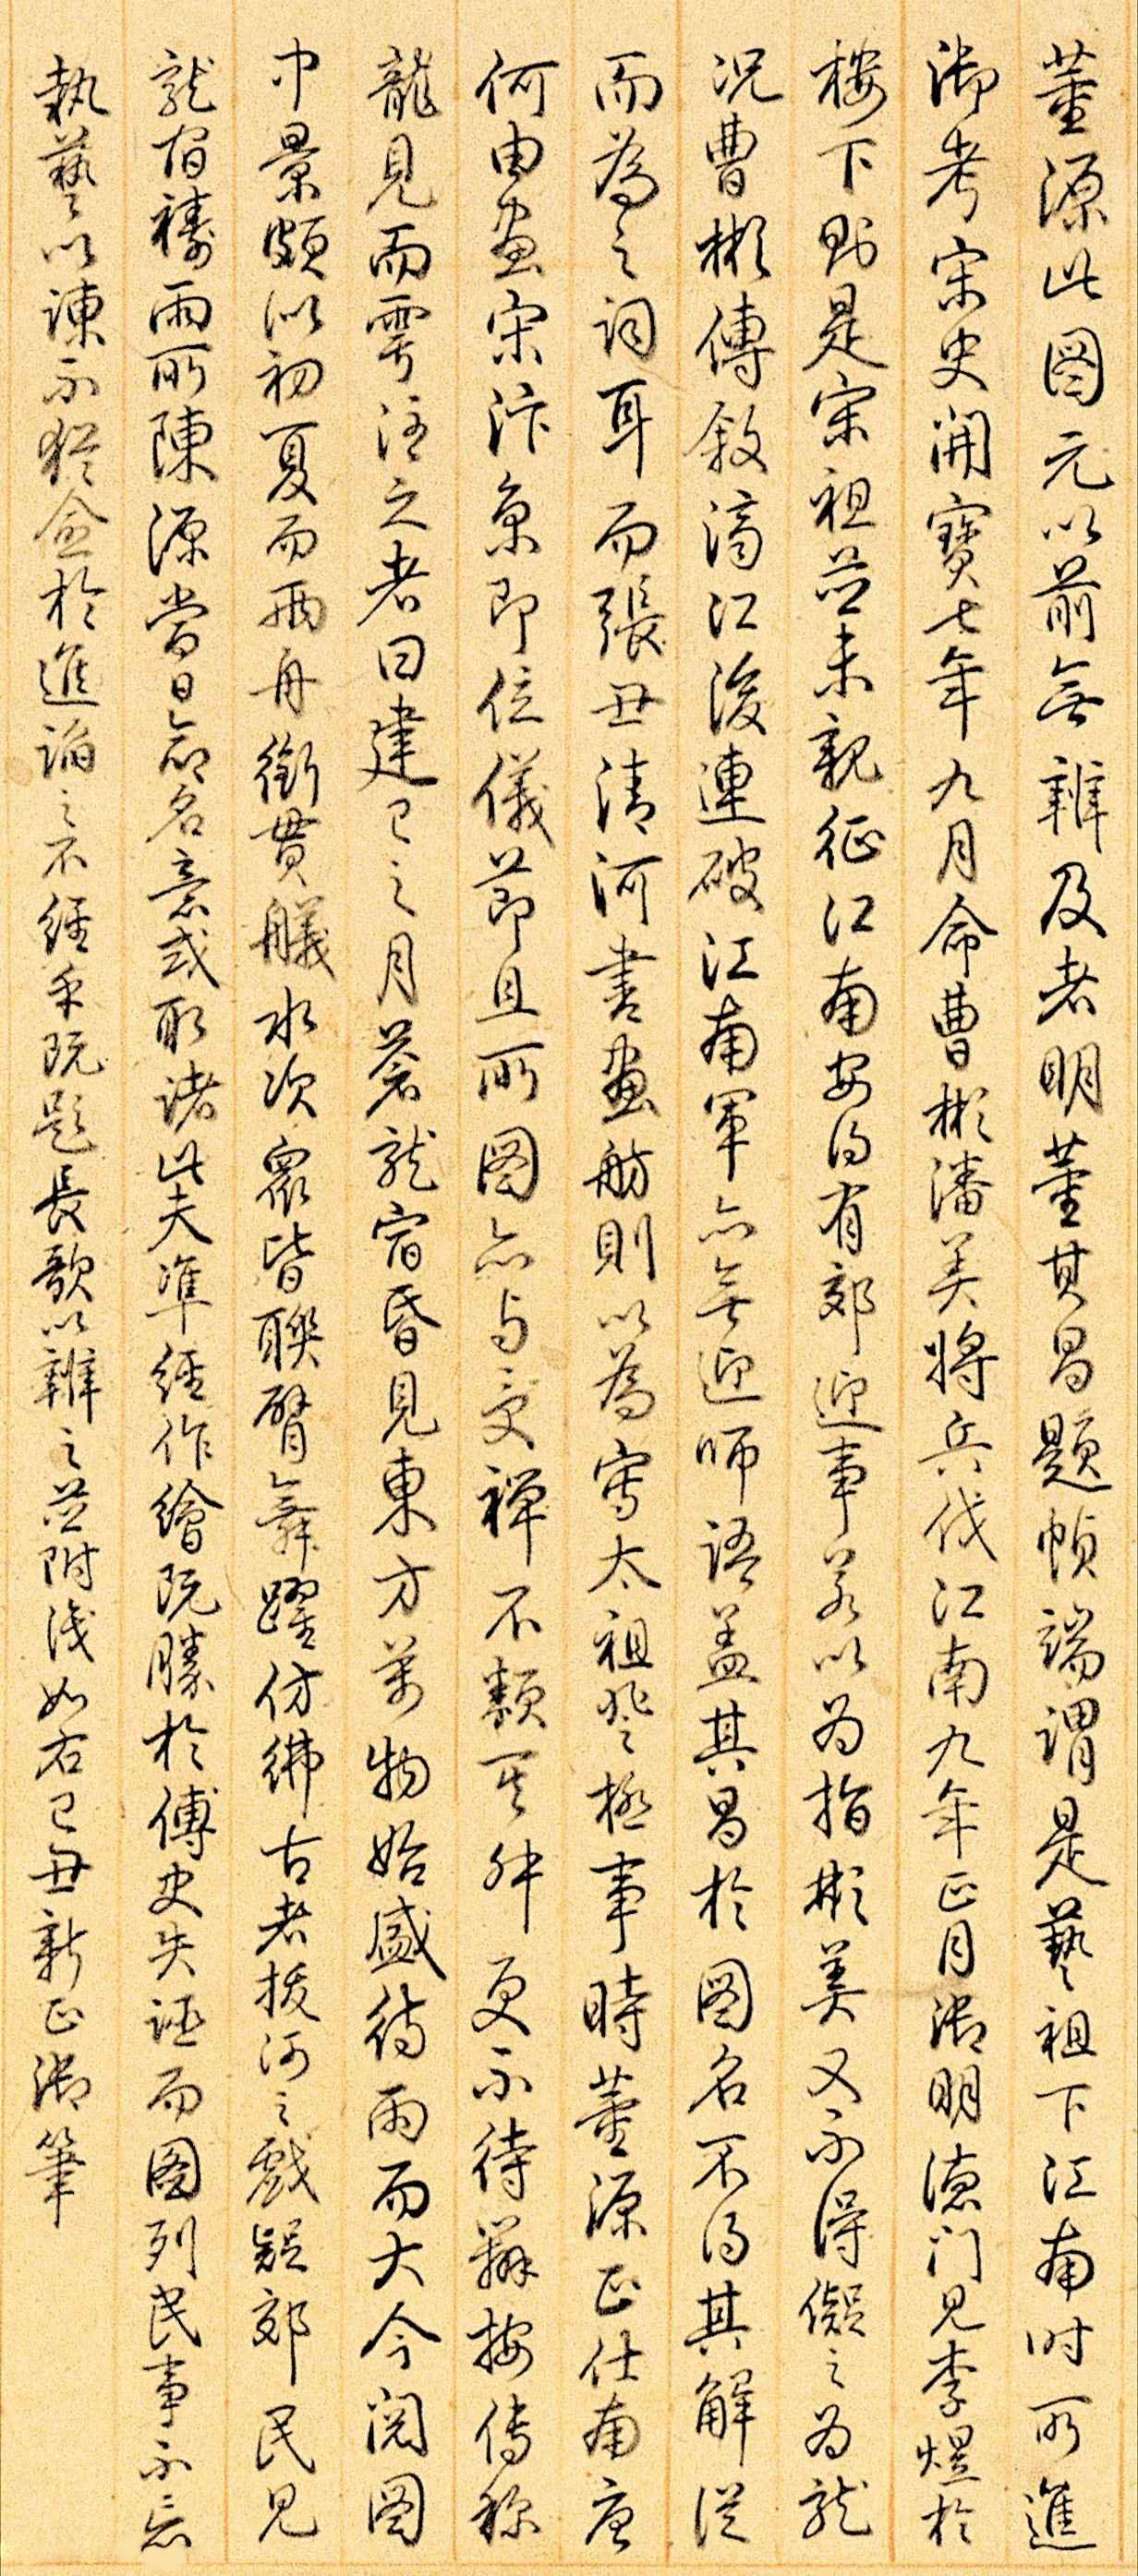 董源此图元以前無辨及者明董其昌題幀端謂是藝祖下江南时所進
御考宋史開寶七年九月命曹彬潘美将兵伐江南九年正月御明德门見李煜於
楼下則是宋祖並未親征江南安得有郊迎事若以为指彬美又不得儗之为龍
况曹彬傳叙濟江後連破江南軍亦無迎師語盖其昌於图名不得其解從
而為之詞耳而張丑清河書畫舫則以為寫太祖登極事時董源正仕南唐
何由畫宋汴京即位儀節且所图亦与受禅不類其舛更不待辨按傳称
龍見而雩注之者曰建巳之月蒼龍宿昏見東方萬物始盛待雨而大今閱图
中景頗似初夏而兩舟銜貫艤水次眾皆聯臂舞躍仿彿古者拔河之戲疑郊民見
龍宿禱雨所陳源當日命名意或取諸此夫準經作繪既勝於傅史失誣而图列民事不忘
執藝以諫不猶愈於進諂之不經乎既題長歌以辨之並附識如右己丑新正御筆